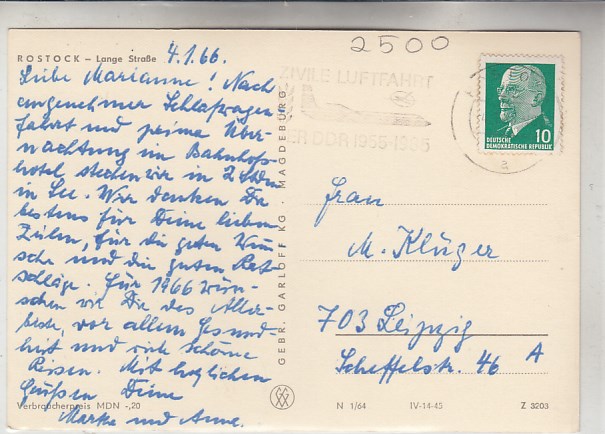 2500
ROSTOCK – Lange Straße
4.1.66.
Liebe Marianne! Nach
angenehmer Schlafwagen
fahrt und prima Über-
nachtung im Bahnhofs-
hotel stechen wir in 2 Stdn
in See. Wir danken Dir
bestens für Deine lieben
Zeilen, für die guten Wün
sche und die guten Rat-
schläge. Für 1966 wün-
schen wir Dir das Aller-
beste, vor allem Gesund-
heit und viele schöne
Reisen. Mit herzlichen
Grüßen Deine
Marka und Anne.
Verbraucherpreis MDN -,20
GEBR. GARLOFF KG · MAGDEBURG
ZIVILE LUFTFAHRT
DER DDR 1955-1965
10
DEUTSCHE
DEMOKRATISCHE REPUBLIK
Frau
M. Klüger
703 Leipzig
Scheffelstr. 46 A
N 1/64
IV-14-45
Z 3203